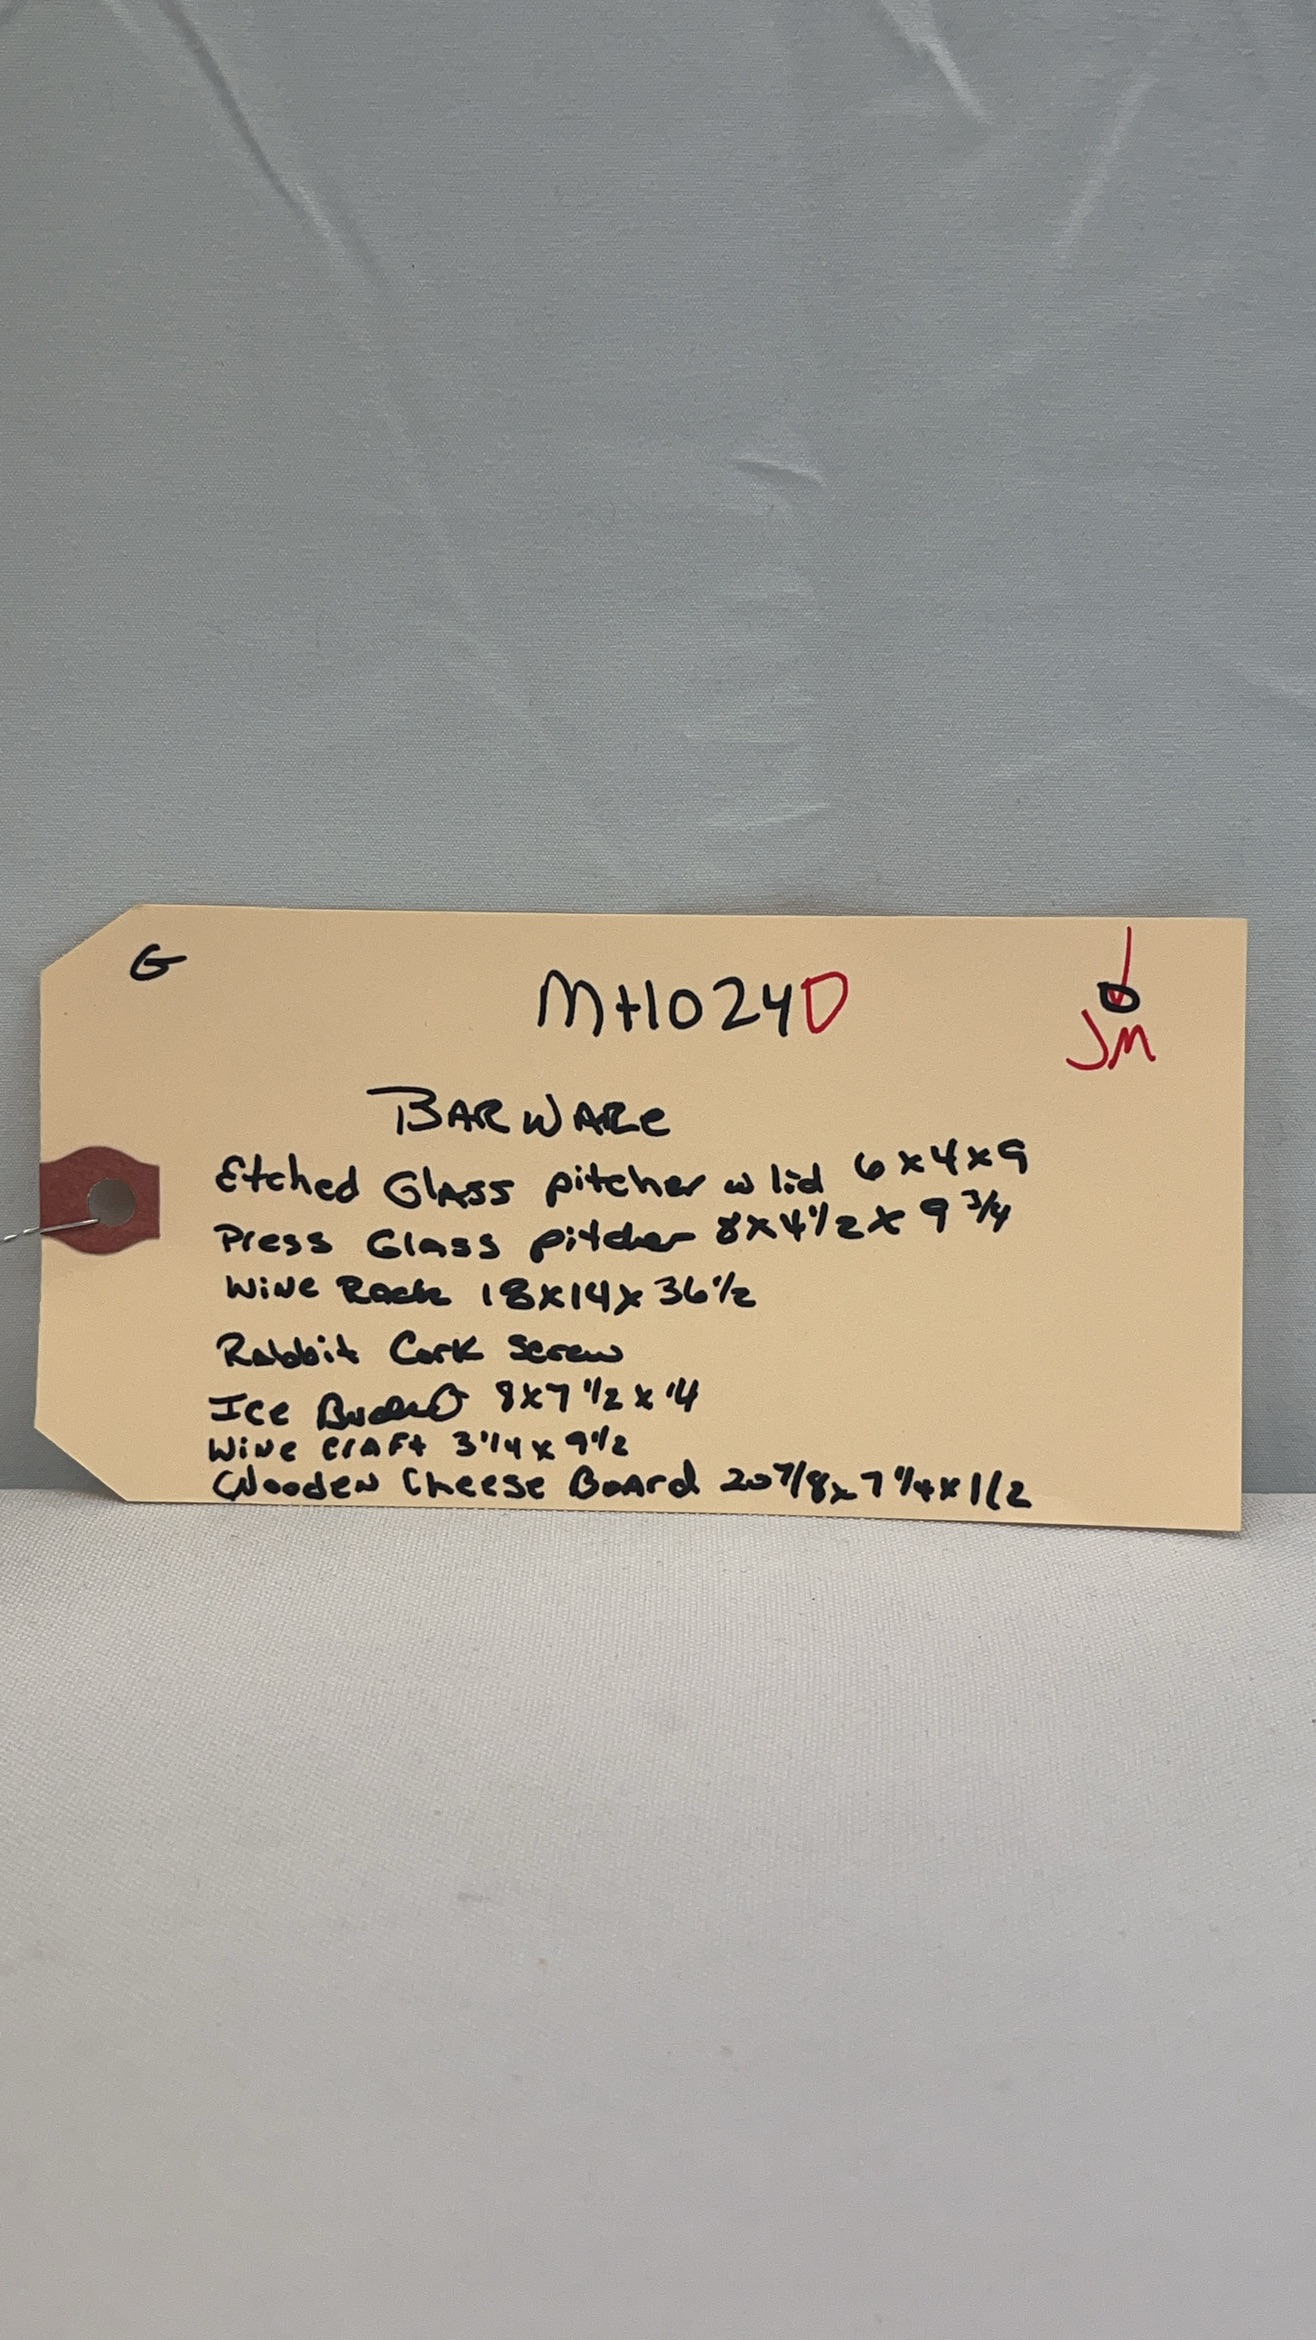 G
MH1024D
JM
BARWARe
Etched Glass pitcher w lid 6x4x9
Press Glass pitcher 8x4 1/2 x 9 3/4
Wine Rack 18x14x36 1/2
Rabbit Cork Screw
Ice Bucket 8x7 1/2 x 14
Wine CrAFt 3 1/4 x 9 1/2
Wooden Cheese Board 20 7/8 x 7 1/4 x 1/2